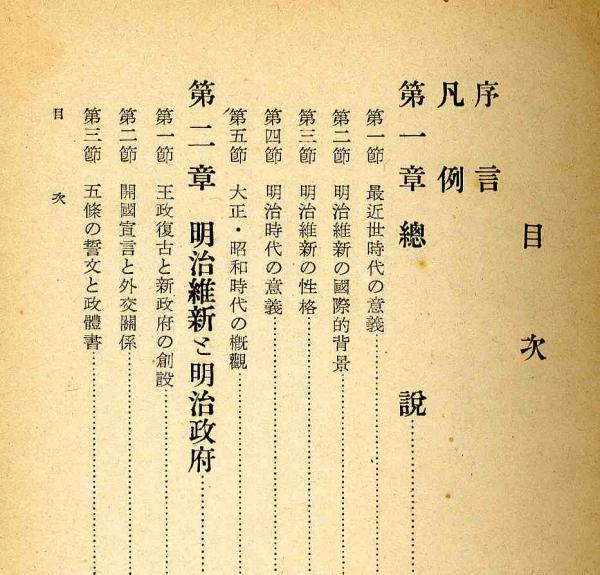 目次
序言
凡例
第一章 總說
第一節 最近世時代の意義
第二節 明治維新の國際的背景
第三節 明治維新の性格
第四節 明治時代の意義
第五節 大正・昭和時代の概觀
第二章 明治維新と明治政府
第一節 王政復古と新政府の創設
第二節 開國宣言と外交關係
第三節 五條の誓文と政體書
目次